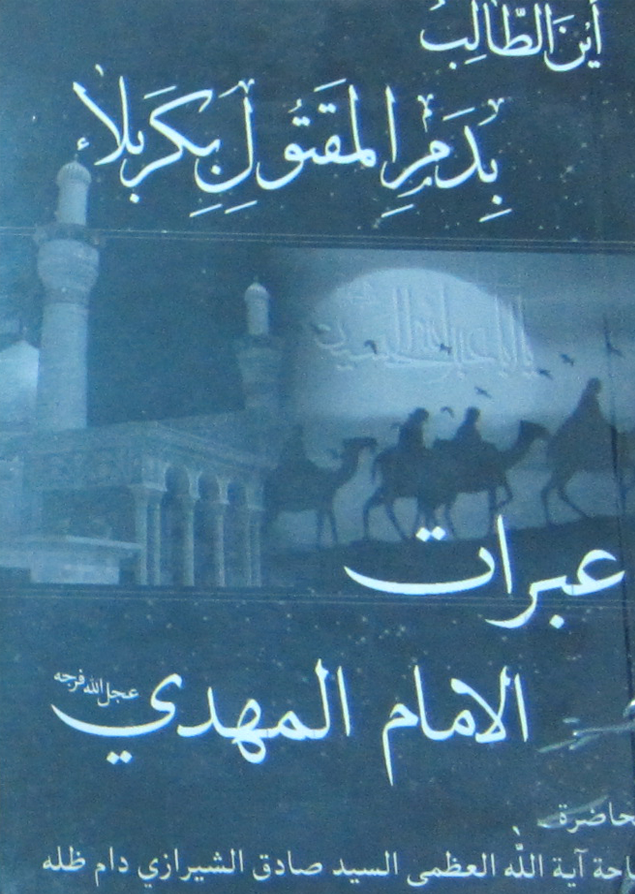 أَيْنَ الطَّالِبُ
بِدَمِ المَقتُولِ بِكَربَلَاءَ
عبرات
الامام المهدي عجل الله فرجه
حاضرة
احة آية الله العظمى السيد صادق الشيرازي دام ظله